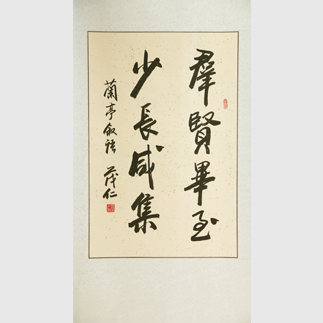 羣賢畢至
少長咸集
蘭亭敘語 茂仁